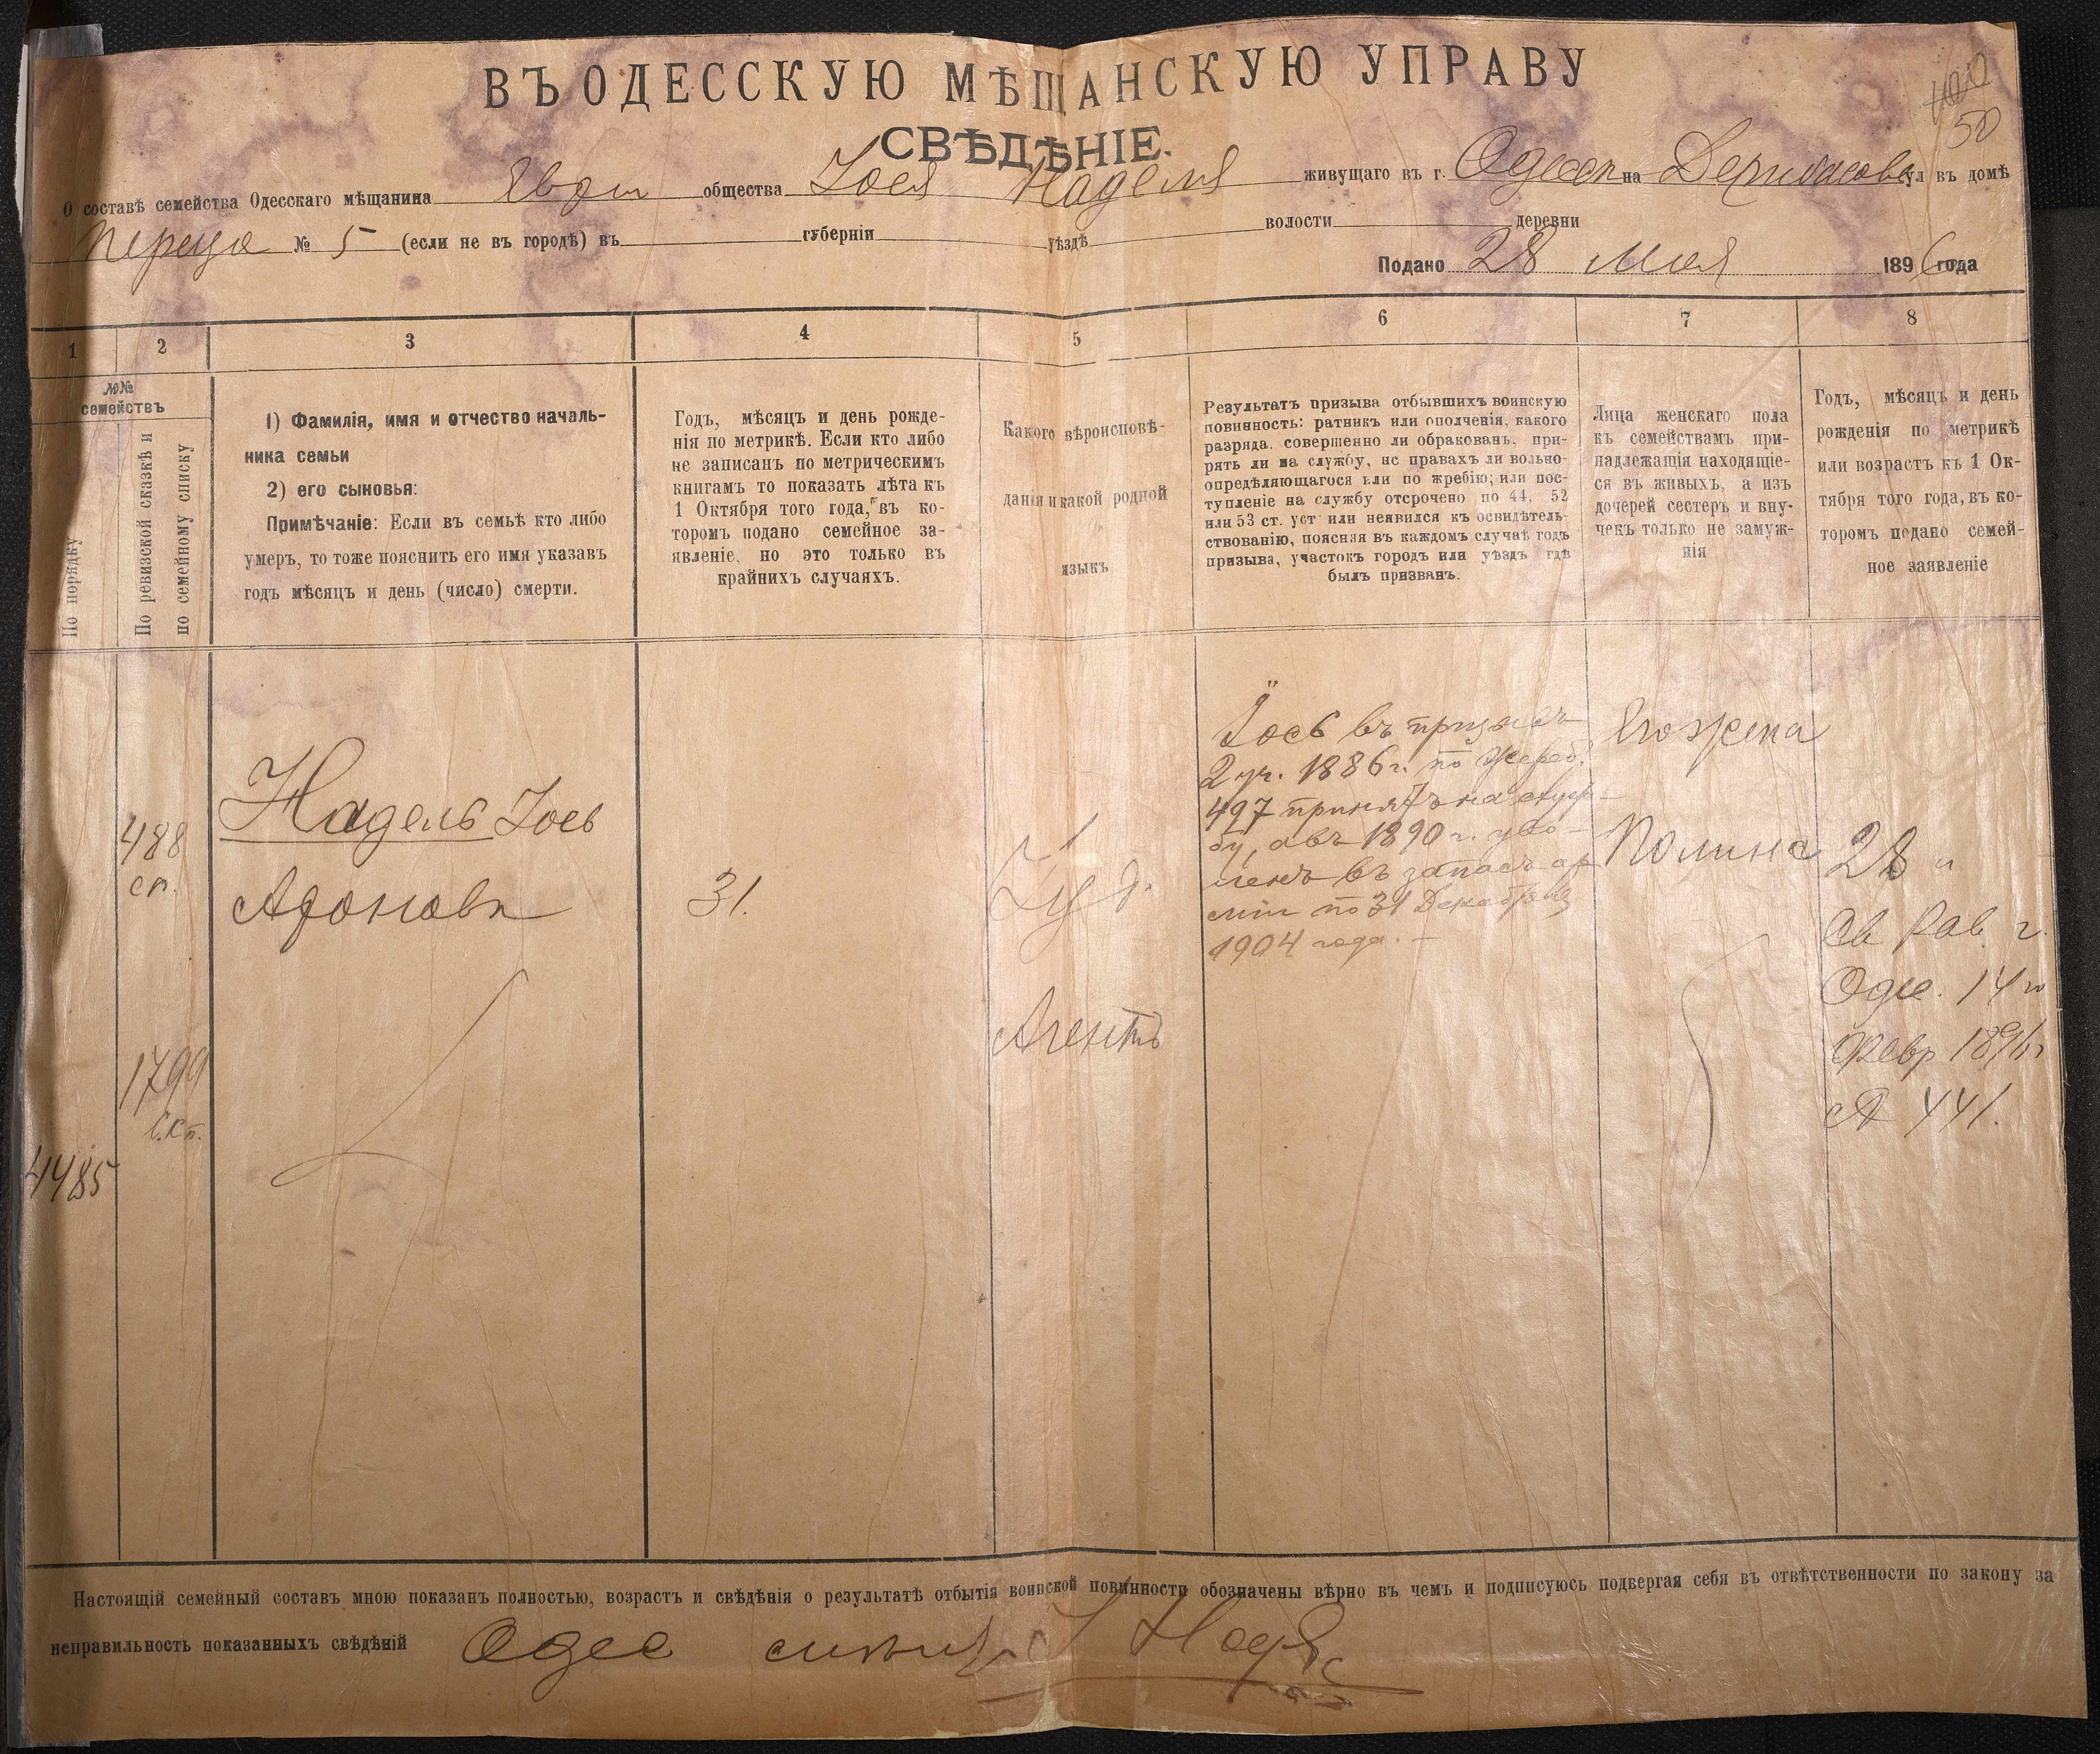 ВЪ ОДЕССКУЮ МѢЩАНСКУЮ УПРАВУ
СВѢДѢНІЕ.
50
О составѣ семейства Одесскаго мѣщанина общества Іося Наделя живущаго въ г. Одессѣ на Дерибасов ул въ домѣ
Переца № 5 (если не въ городѣ) въ губерніи уѣздѣ волости деревни
Подано 28 Мая 1896 года
1 2 3 4 5 6 7 8
№№
семействъ
По порядку
По ревизской сказкѣ и
по семейному списку
1) Фамилія, имя и отчество началь-
ника семьи
2) его сыновья:
Примѣчаніе: Если въ семьѣ кто либо
умеръ, то тоже пояснить его имя указавъ
годъ мѣсяцъ и день (число) смерти.
Годъ, мѣсяцъ и день рожде-
нія по метрикѣ. Если кто либо
не записанъ по метрическимъ
книгамъ то показать лѣта къ
1 Октября того года, въ ко-
торомъ подано семейное за-
явленіе, но это только въ
крайнихъ случаяхъ.
Какого вѣроисповѣ-
данія и какой родной
языкъ
Результатъ призыва отбывшихъ воинскую
повинность: ратникъ или ополченія, какого
разряда. совершенно ли обракованъ, при-
рять ли на службу, нс правахъ ли вольно-
опредѣляющагося или по жребію; или пос-
тупленіе на службу отсрочено по 44, 52
или 53 ст. уст или неявился къ освидѣтель-
ствованію, поясняя въ каждомъ случаѣ годъ
призыва, участокъ городъ или уѣздъ гдѣ
былъ призванъ.
Лица женскаго пола
къ семействамъ при-
надлежащія находящіе-
ся въ живыхъ, а изъ
дочерей сестеръ и вну-
чекъ только не замуж-
нія
Годъ, мѣсяцъ и день
рожденія по метрикѣ
или возрастъ къ 1 Ок-
тября того года, въ ко-
торомъ подано семей-
ное заявленіе
4485
488
сп.
1799
Надель Іось
31.
Іуд.
Агентъ
Іось въ призывѣ
2 уч. 1886 г. по жереб.
497 принятъ на служ-
бу, а въ 1890 г. уво-
ленъ въ запасъ ар
міи по 31 Декабря
1904 года. —
Его жена
Полина
28
Св Рав. г.
Одес. 14 го
Февр 1896 г
№ 441.
Настоящій семейный составъ мною показанъ полностью, возрастъ и свѣдѣнія о результатѣ отбытія воинской повинности обозначены вѣрно въ чемъ и подписуюсь подвергая себя въ отвѣтственности по закону за
неправильность показанныхъ свѣдѣній Одес